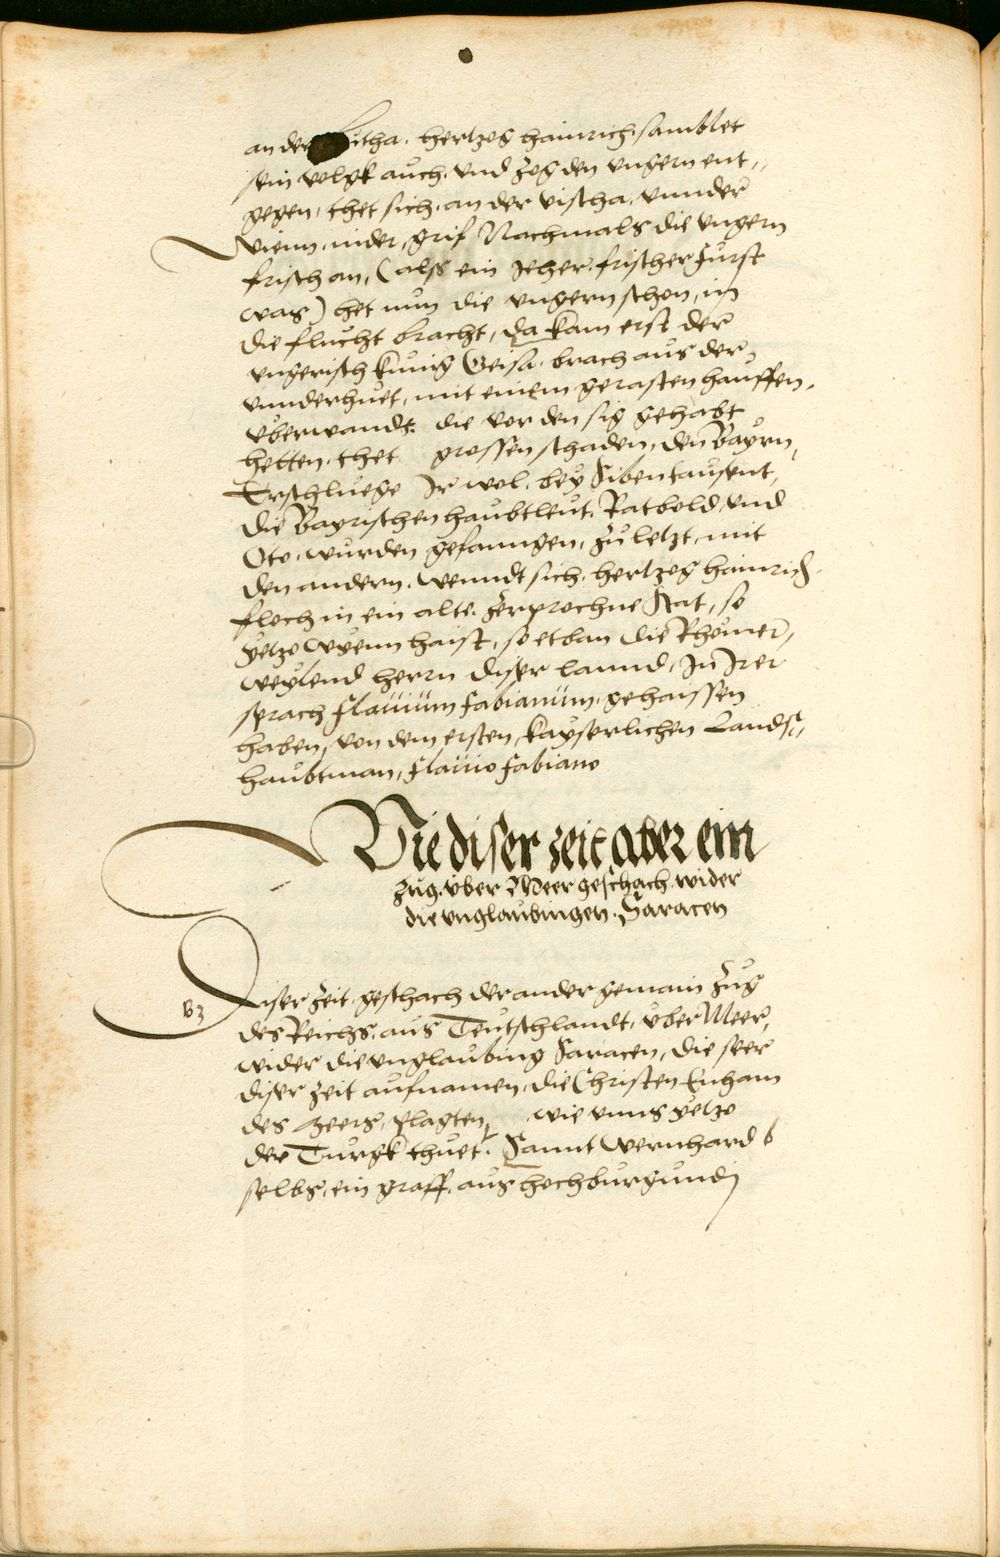 an der litha. hertzog hainrich, samblet
sein volgk auch, vnd zog den vngern ent,,
gegen, thet sich, an der vischa, vnnder
Wienn, nider, grif Nachmals die vngern
frisch an, (alss ein Jeher, frischer furst
was) het nun die vngern schon, in
die flucht bracht, da kam erst der
vngerisch kunig Geisa. brach aus der
vnnderhuet, mit einem gerasten hauffen,
vberwandt die vor den sig gehabt
hetten, thet grossen schaden, den Bayrn,
Erschluege Jr wol, bey sibentausent,
die Bayrischen haubtleut, Ratbold vnd
Oto, wurden gefanngen, zu letzt, mit
den andern, wenndt sich, hertzog hainrich
floch in ein alte, zerprochne stat, so
yetzo wyenn haist, so etban die Rhömer,
weylend herrn diser lannd, In Irer
sprach flauium fabianum, gehaissen
haben, von dem ersten, kayserlichen Lands,,
haubtman, flauio fabiano
Wie diser zeit aber ein
zug, vber Meer geschach, wider
die vnglaubingen, Saracen
Diser zeit, geschach der ander gemain zug
des Reichs, aus Teutschlandt, vber Meer,
wider die vnglaubing saracen, die seer
diser zeit aufnamen, die Christen
des plagten, wie vnns yetzo
der Turgk thuet. Sannt Wernhard
selbs, ein graff, aus hochburgundj